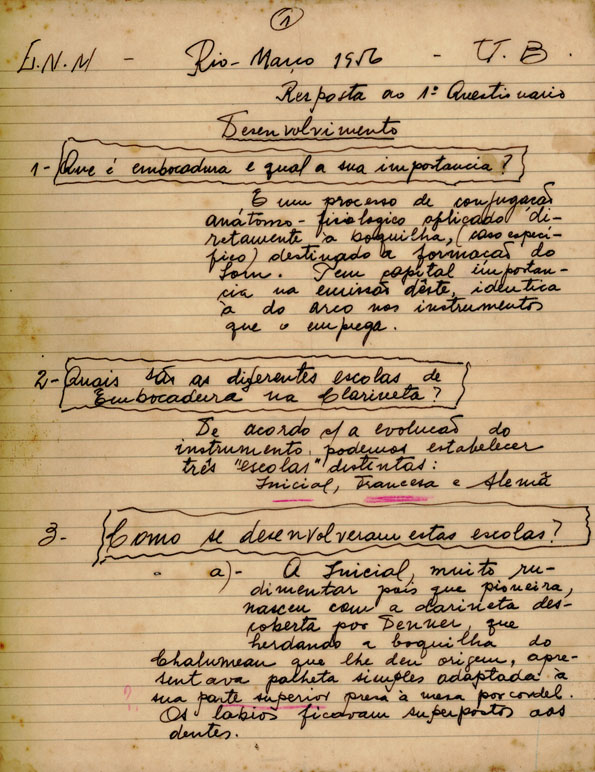 1
E.N.M - Rio - Março 1956 - U.B.
Resposta ao 1º Questionario
Desenvolvimento
1- Que é embocadura e qual a sua importancia?
É um processo de conjugação
anátomo-fisiologico aplicado di-
retamente à boquilha, (caso especí-
fico) destinado a formação do
Som. Tem capital importan-
cia na emissão dêste, identica
à do arco nos instrumentos
que o emprega.
2- Quais são as diferentes escolas de
Embocadura na Clarineta?
De acordo c/ a evolução do
instrumento, podemos estabelecer
três "escolas" distintas:
Inicial, Francesa e Alemã
3- Como se desenvolveram estas escolas?
a)- A Inicial, muito ru-
dimentar pois que pioneira,
nasceu com a clarineta des-
coberta por Denner, que
herdando a boquilha do
Chalumeau que lhe deu origem, apre-
sentava palheta simples adaptada à
?. sua parte superior presa à mesa por cordel.
Os labios ficavam superpostos aos
dentes.